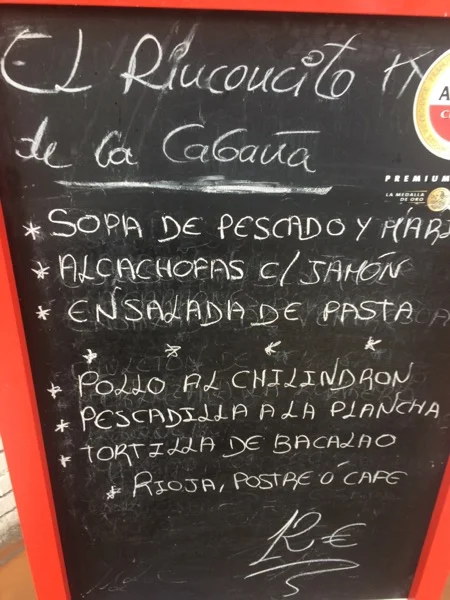 El Rinconcito
de la Cabaña
PREMIUM
LA MEDALLA
DE ORO
* SOPA DE PESCADO Y MARI
* ALCACHOFAS C/ JAMÓN
* ENSALADA DE PASTA
* * * *
* POLLO AL CHILINDRON
* PESCADILLA A LA PLANCHA
* TORTILLA DE BACALAO
* RIOJA, POSTRE Ó CAFE
12€